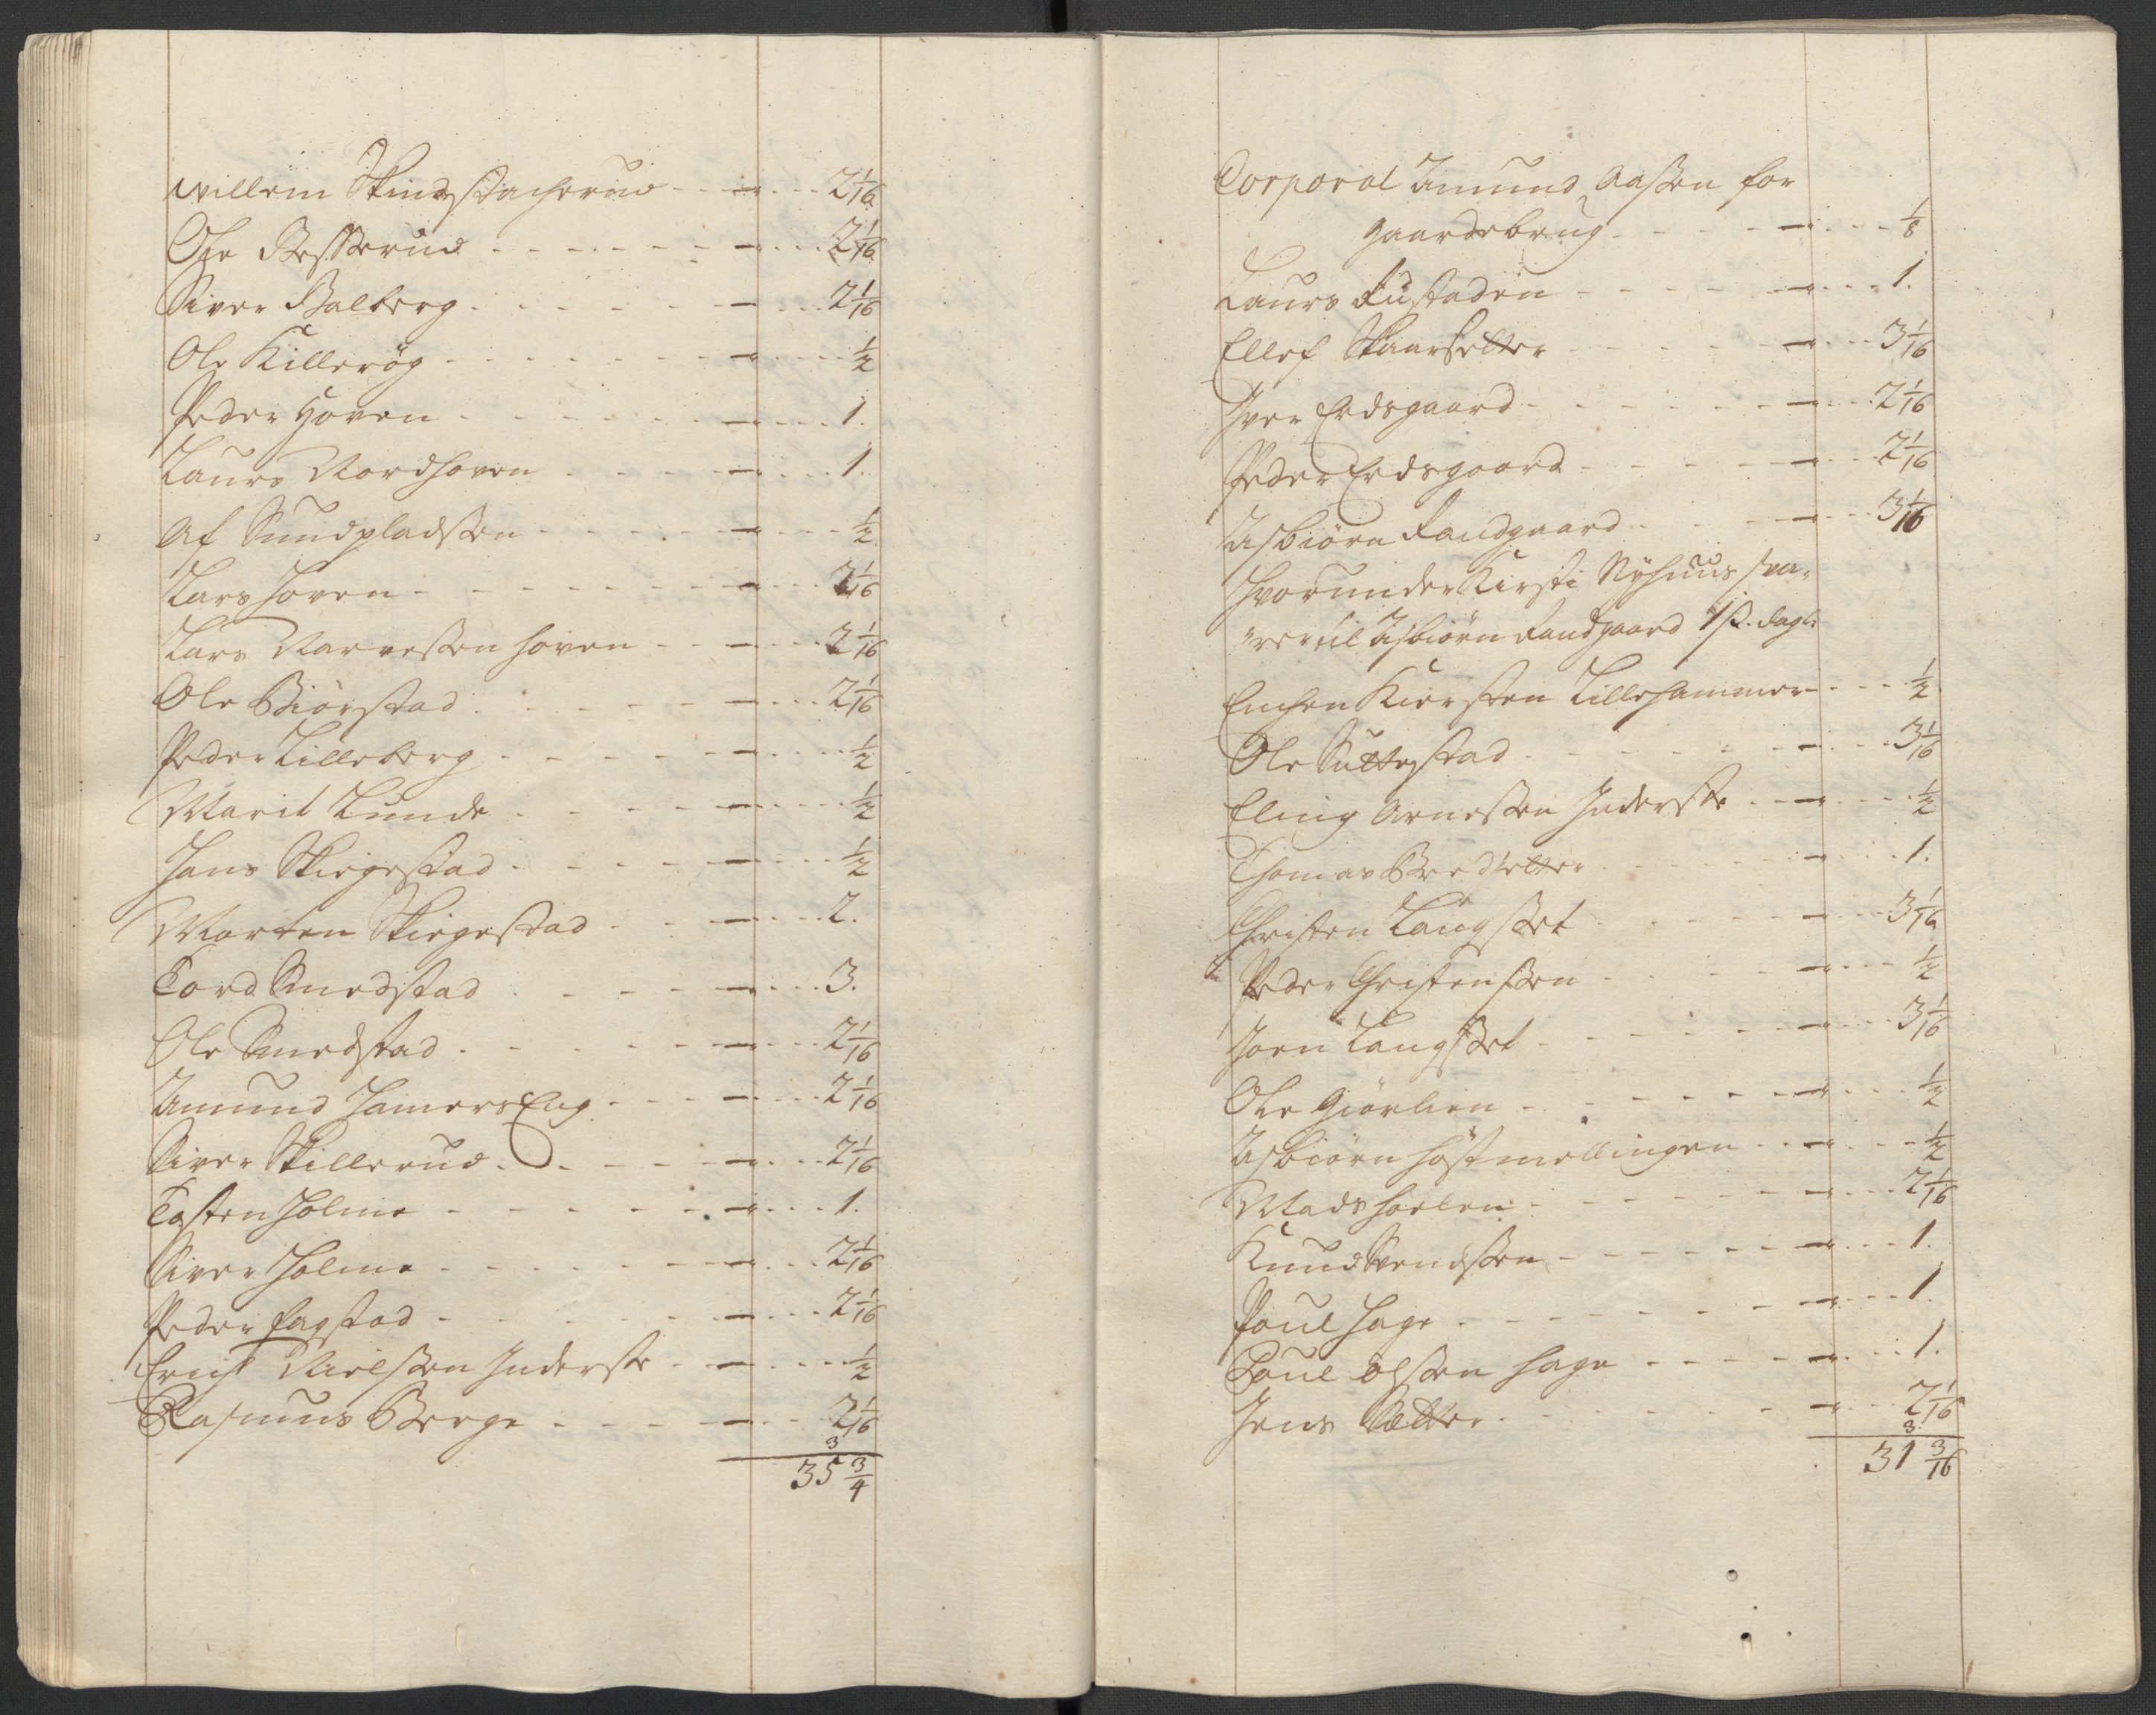 Willem Skindstacherud - - - 2 1/16
Ole Besserud - - - 2 1/16
Siver Balberg - - - 2 1/16
Ole Killerøg - - - 1/2
Peder Hoven - - - 1.
Laurs Nordhoven - - - 1.
Af Sundpladssen - - - 1/2
Lars Hoven - - - 2 1/16
Lars Narvessen Hoven - - - 2 1/16
Ole Biørstad - - - 2 1/16
Peder Lilleberg - - - 1/2
Marit Lunde - - - 1/2
Hans Skiegestad - - - 1/2
Morten Skiegestad - - - 2.
Tord Smedstad - - - 3.
Ole Smedstad - - - 2 1/16
Amund HamersEng - - - 2 1/16
Siver Skillerud - - - 2 1/16
Tosten Holme - - - 1.
Siver Holme - - - 2 1/16
Peder Fagstad - - - 2 1/16
Erich Nielssen Inderste - - - 1/2
Rasmus Berge - - - 2 1/16
3
35 3/4
Corporal Amund Aassen for
gaardebrug - - - 1/8
Laurs Rustaden - - - 1.
Ellef Skaarsetter - - - 3 1/16
Iver Erdsgaard - - - 2 1/16
Peder Erdsgaard - - - 2 1/16
Asbiørn Randgaard - - - 3 1/16
Hvorunder Kirsti Nyhuus sva-
rer til Asbiørn Randgaard 1 ß. dagl:
Enchen Kiersten Lillehammer - - - 1/2
Ole Suttestad - - - 3 1/16
Eling Arnessen Inderste - - - 1/2
Thomas Bredsetter - - - 1.
Christen Laugset - - - 3 1/16
Peder Christenssen - - - 1/2
Joen Laugset - - - 3 1/16
Ole Giørlien - - - 1/2
Asbiørn Høstmellingen - - - 1/2
Mads Hoelen - - - 2 1/16
Knud Svendssen - - - 1.
Poul Hage - - - 1.
Poul Olssen Hage - - - 1.
Jens Sætter - - - 2 1/16
3
31 3/16